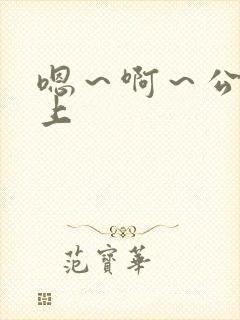 嗯～啊～公
上
范寶華